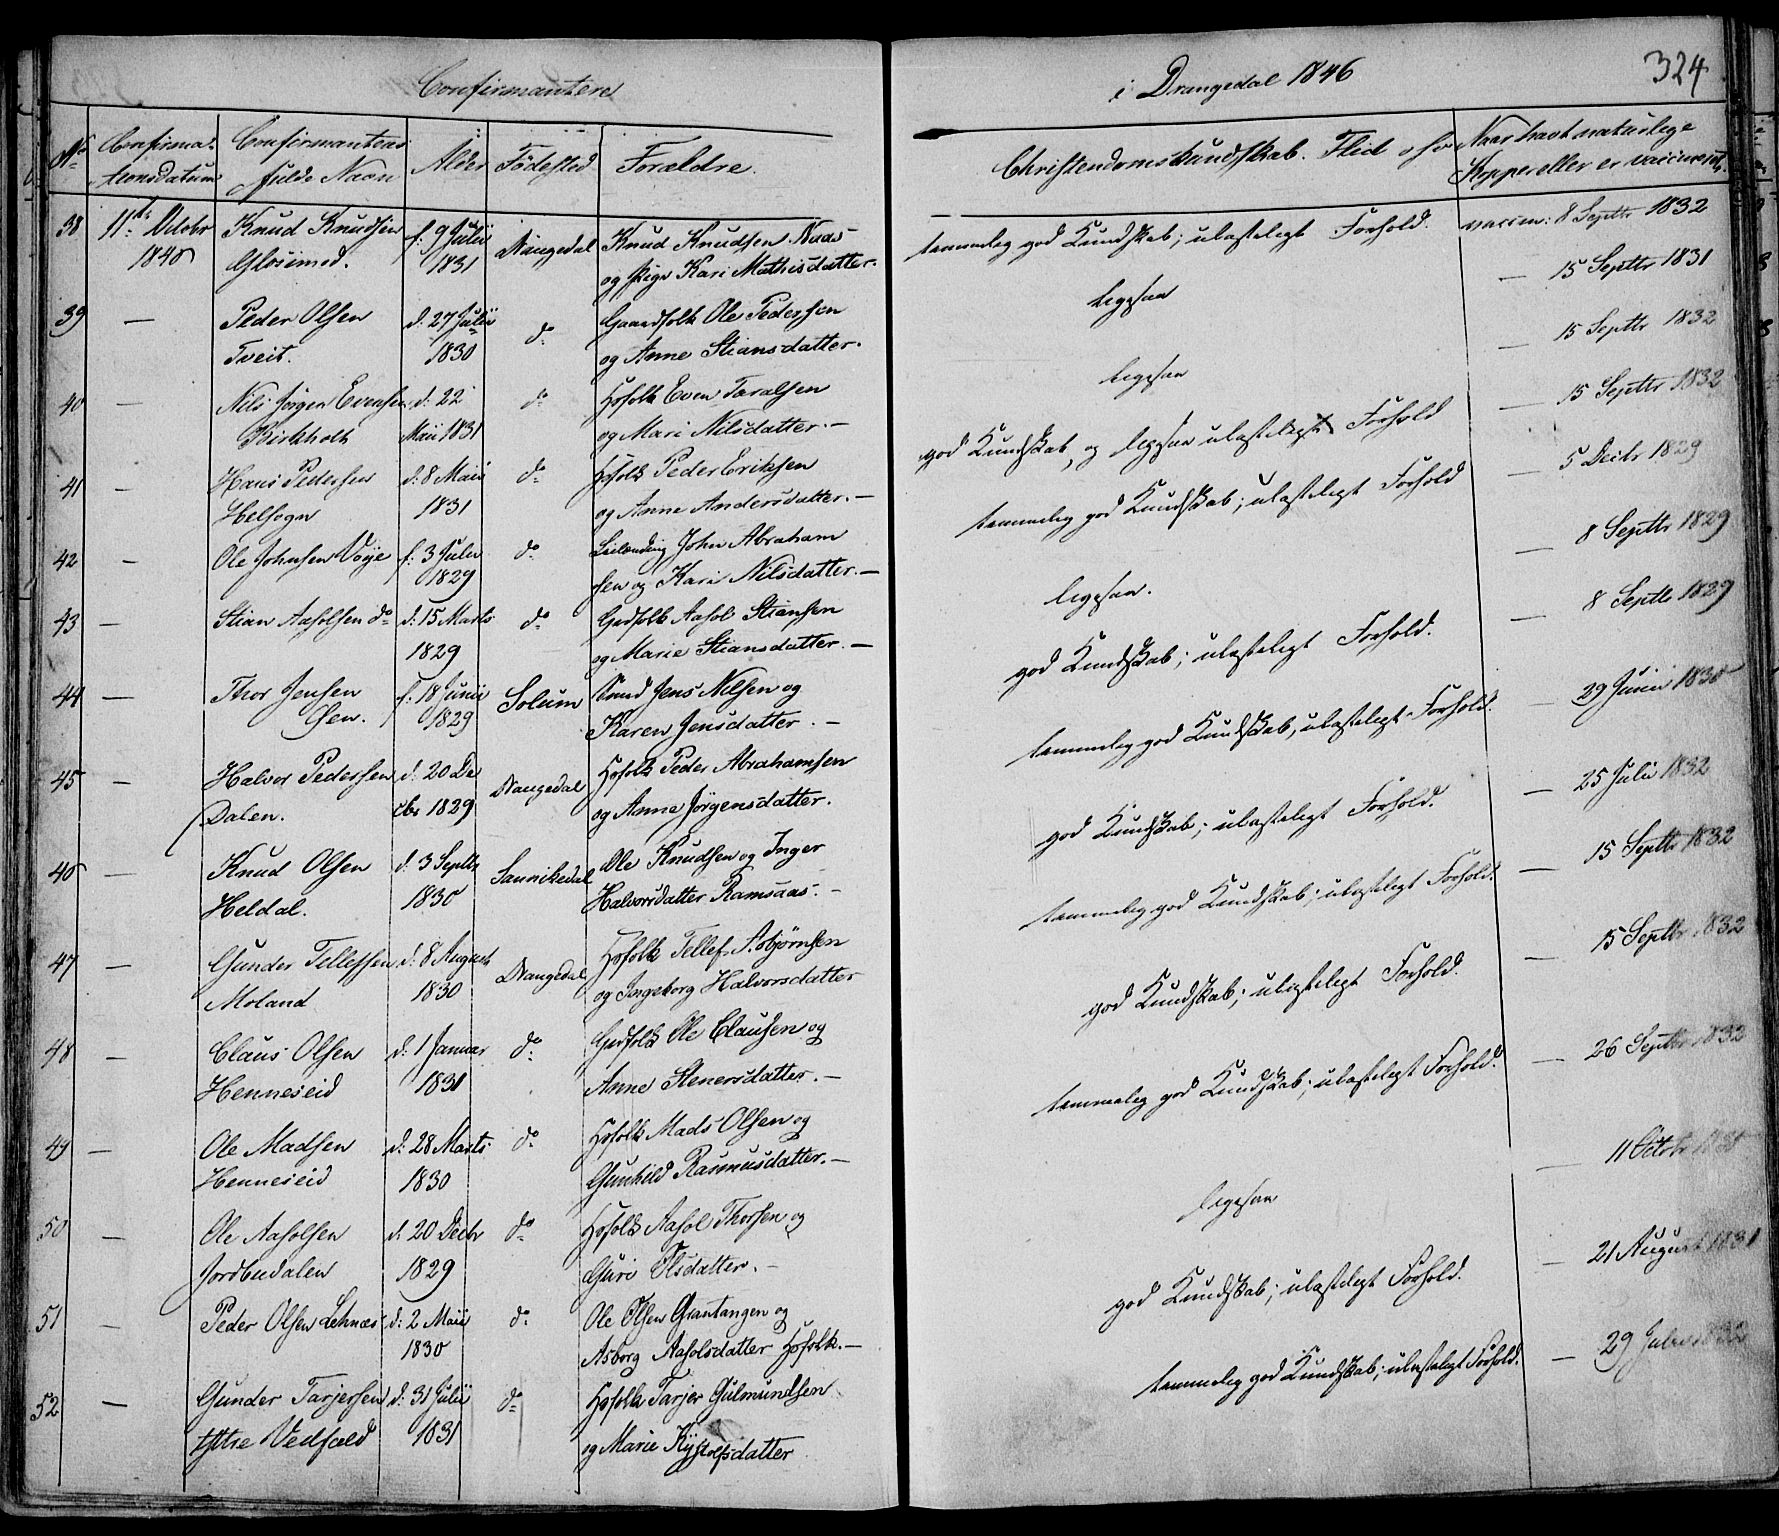 Confirmantere
i Drangedal 1846
324
No
Confirma-
tionsdatum
Confirmantens
fulde Navn
Alder
Födested
Forældre.
Christendomskundskab. Flid o fo
Naar havt naturlige
Kopper eller er vaccineret.
38 11te Octobr Knud Knudsen f. 9 Julii Drangedal Knud Knudsen Naas temmelig god Kundskab; ulasteligt Forhold. vaccin: 8 Septbr 1832
1846 1831 og Pige Kari Mathisdatter. — 15 Septbr 1831
39 — Peder Olsen d. 27 Julii do Gaardfolk Ole Pedersen ligesaa
Tveit. 1830 og Anne Stiansdatter. — 15 Septbr 1832
40 — Nils Jörgen Evensen d. 22 do Hosfolk Even Taralsen ligesaa
Birkholt Maii 1831 og Mari Nilsdatter. — — 15 Septbr 1832
41 — Hans Pedersen d. 8 Maii do Hosfolk Peder Eriksen god Kundskab, og ligesaa ulasteligt Forhold
Helsogn 1831 og Anne Andersdatter. — — 5 Decbr 1829
42 — Ole Johnsen Voje f. 3 Julii do Leilending John Abraham temmelig god Kundskab; ulasteligt Forhold
1829 sen og Kari Nilsdatter. — — 8 Septbr 1829
43 — Stian Aasolsen do d. 15 Marts do Grdfolk Aasol Stiansen ligesaa.
1829 og Marie Stiansdatter. — — 8 Septb 1829
44 — Thor Jensen f. 18 Junii Solum Jens Nilsen og god Kundskab; ulasteligt Forhold.
1829 Karen Jensdatter. — — 29 Junii 1830
45 — Halvor Pedersen d. 20 De Drangedal Hosfolk Peder Abrahamsen temmelig god Kundskab, ulasteligt Forhold.
Dalen. cbr 1829 og Anne Jörgensdatter. — 25 Julii 1832
46 — Knud Olsen d. 3 Septbr Sannikedal Ole Knudsen og Inger god Kundskab; ulasteligt Forhold.
Heldal. 1830 Halvorsdatter Ramsaas. — — 15 Septbr 1832
47 — Gunder Tellefsen d. 8 August Drangedal Hosfolk Tellef Asbjörnsen temmelig god Kundskab; ulasteligt Forhold.
Moland 1830 og Ingeborg Halvorsdatter — 15 Septbr 1832
48 — Claus Olsen d. 1 Januar do Grdfolk Ole Clausen og god Kundskab; ulasteligt Forhold.
Henneseid 1831 Anne Stenersdatter. — — 26 Septbr 1832
49 — Ole Madsen d. 28 Marts do Hosfolk Mads Olsen og temmelig god Kundskab; ulasteligt Forhold.
Henneseid 1830 Gunhild Rasmusdatter. — — 11 Octobr
50 — Ole Aasolsen d. 20 Decbr do Hosfolk Aasol Thorsen og ligesaa
Jordbudalen 1829 Guri Olsdatter. — — 21 August 1831
51 — Peder Olsen Lehnæs d. 2 Maii do Ole Olsen Grantangen og god Kundskab; ulasteligt Forhold.
1830 Asborg Aasolsdatter Hosfolk. — — 29 Julii 1832
52 — Gunder Tarjersen d. 31 Julii do Hosfolk Tarjer Gulmundsen temmelig god Kundskab; ulasteligt Forhold.
Yttre Vedfald 1831 og Marie Kystolfsdatter